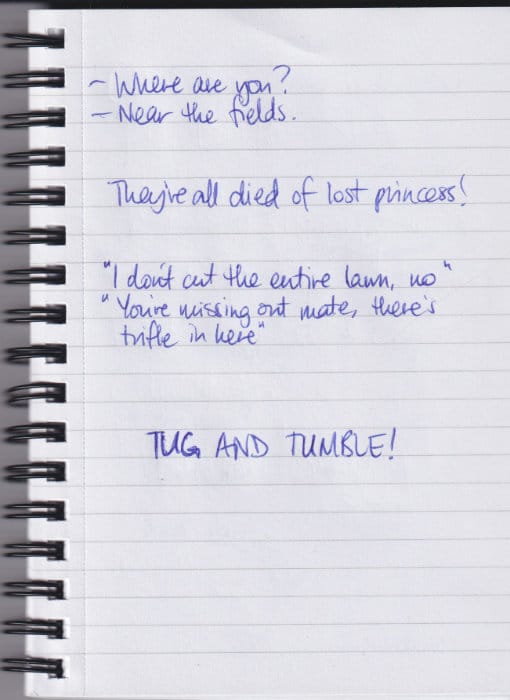 - Where are you?
- Near the fields.
They're all died of lost princess!
"I don't cut the entire lawn, no"
"You're missing out mate, there's
trifle in here"
TUG AND TUMBLE!